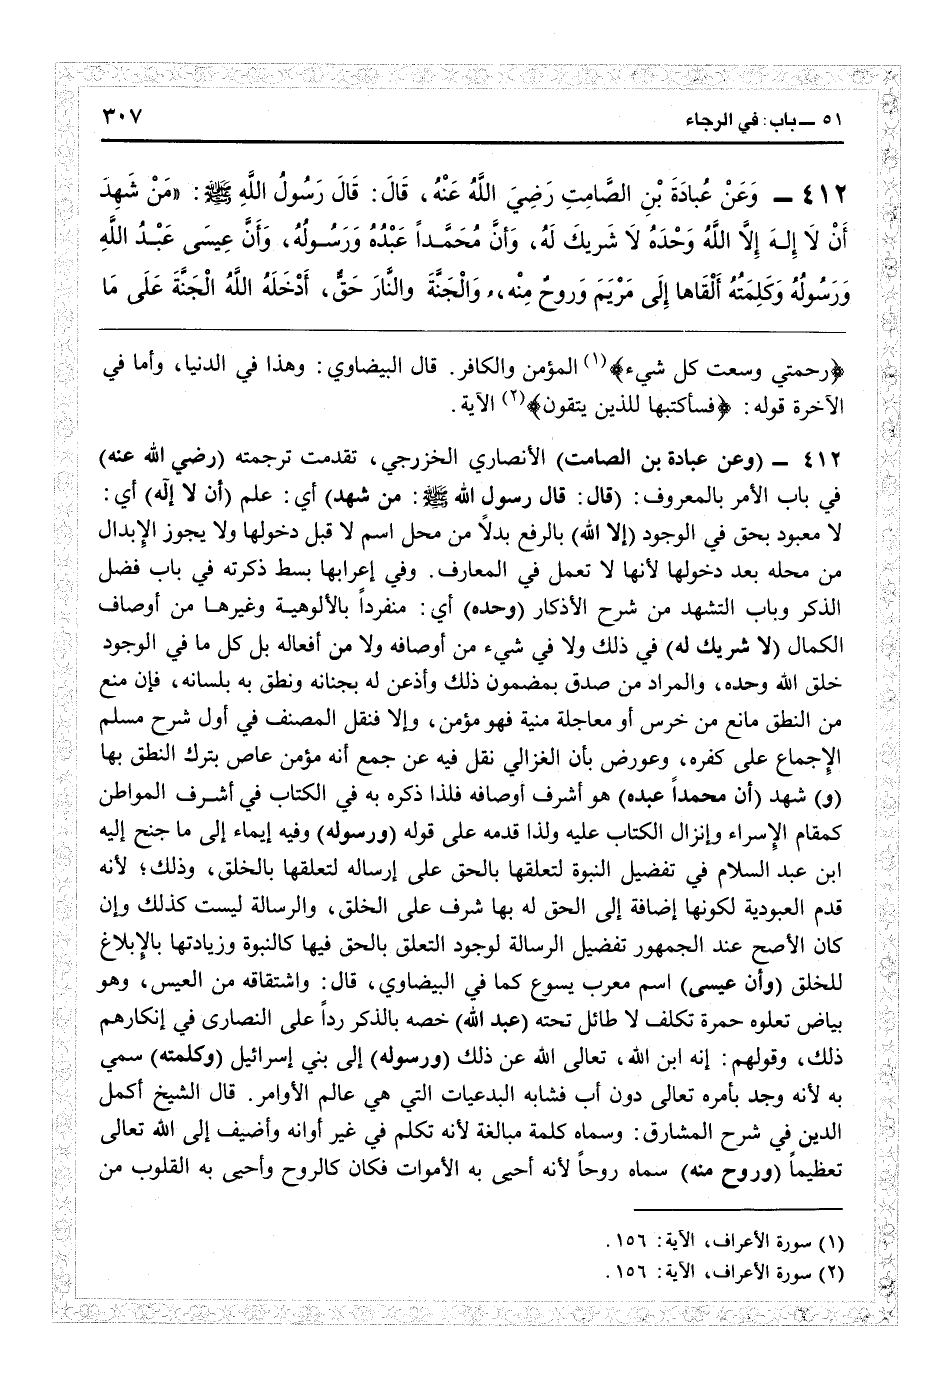 ٥١ ــ باب: في الرجاء ٣٠٧
٤١٢ ــ وَعَنْ عُبادَةَ بْنِ الصَّامِتِ رَضِيَ اللَّهُ عَنْهُ، قَالَ: قَالَ رَسُولُ اللَّهِ ﷺ: «مَنْ شَهِدَ
أَنْ لَا إِلهَ إِلَّا اللَّهُ وَحْدَهُ لَا شَرِيكَ لَهُ، وَأَنَّ مُحَمَّداً عَبْدُهُ وَرَسُولُهُ، وَأَنَّ عِيسَى عَبْدُ اللَّهِ
وَرَسُولُهُ وَكَلِمَتُهُ أَلْقَاها إِلَى مَرْيَمَ وَروحٌ مِنْه،، وَالْجَنَّةَ والنَّارَ حَقٌّ، أَدْخَلَهُ اللَّهُ الْجَنَّةَ عَلَى مَا
﴿رحمتي وسعت كل شيء﴾(١) المؤمن والكافر. قال البيضاوي: وهذا في الدنيا، وأما في
الآخرة قوله: ﴿فسأكتبها للذين يتقون﴾(٢) الآية.
٤١٢ ــ (وعن عبادة بن الصامت) الأنصاري الخزرجي، تقدمت ترجمته (رضي الله عنه)
في باب الأمر بالمعروف: (قال: قال رسول الله ﷺ: من شهد) أي: علم (أن لا إلٰه) أي:
لا معبود بحق في الوجود (إلا الله) بالرفع بدلاً من محل اسم لا قبل دخولها ولا يجوز الإِبدال
من محله بعد دخولها لأنها لا تعمل في المعارف. وفي إعرابها بسط ذكرته في باب فضل
الذكر وباب التشهد من شرح الأذكار (وحده) أي: منفرداً بالألوهية وغيرها من أوصاف
الكمال (لا شريك له) في ذلك ولا في شيء من أوصافه ولا من أفعاله بل كل ما في الوجود
خلق الله وحده، والمراد من صدق بمضمون ذلك وأذعن له بجنانه ونطق به بلسانه، فإن منع
من النطق مانع من خرس أو معاجلة منية فهو مؤمن، وإلا فنقل المصنف في أول شرح مسلم
الإِجماع على كفره، وعورض بأن الغزالي نقل فيه عن جمع أنه مؤمن عاص بترك النطق بها
(و) شهد (أن محمداً عبده) هو أشرف أوصافه فلذا ذكره به في الكتاب في أشرف المواطن
كمقام الإِسراء وإنزال الكتاب عليه ولذا قدمه على قوله (ورسوله) وفيه إيماء إلى ما جنح إليه
ابن عبد السلام في تفضيل النبوة لتعلقها بالحق على إرساله لتعلقها بالخلق، وذلك؛ لأنه
قدم العبودية لكونها إضافة إلى الحق له بها شرف على الخلق، والرسالة ليست كذلك وإن
كان الأصح عند الجمهور تفضيل الرسالة لوجود التعلق بالحق فيها كالنبوة وزيادتها بالإِبلاغ
للخلق (وأن عيسى) اسم معرب يسوع كما في البيضاوي، قال: واشتقاقه من العيس، وهو
بياض تعلوه حمرة تكلف لا طائل تحته (عبد الله) خصه بالذكر رداً على النصارى في إنكارهم
ذلك، وقولهم: إنه ابن الله، تعالى الله عن ذلك (ورسوله) إلى بني إسرائيل (وكلمته) سمي
به لأنه وجد بأمره تعالى دون أب فشابه البدعيات التي هي عالم الأوامر. قال الشيخ أكمل
الدين في شرح المشارق: وسماه كلمة مبالغة لأنه تكلم في غير أوانه وأضيف إلى الله تعالى
تعظيماً (وروح منه) سماه روحاً لأنه أحيى به الأموات فكان كالروح وأحيى به القلوب من
(١) سورة الأعراف، الآية: ١٥٦.
(٢) سورة الأعراف، الآية: ١٥٦.